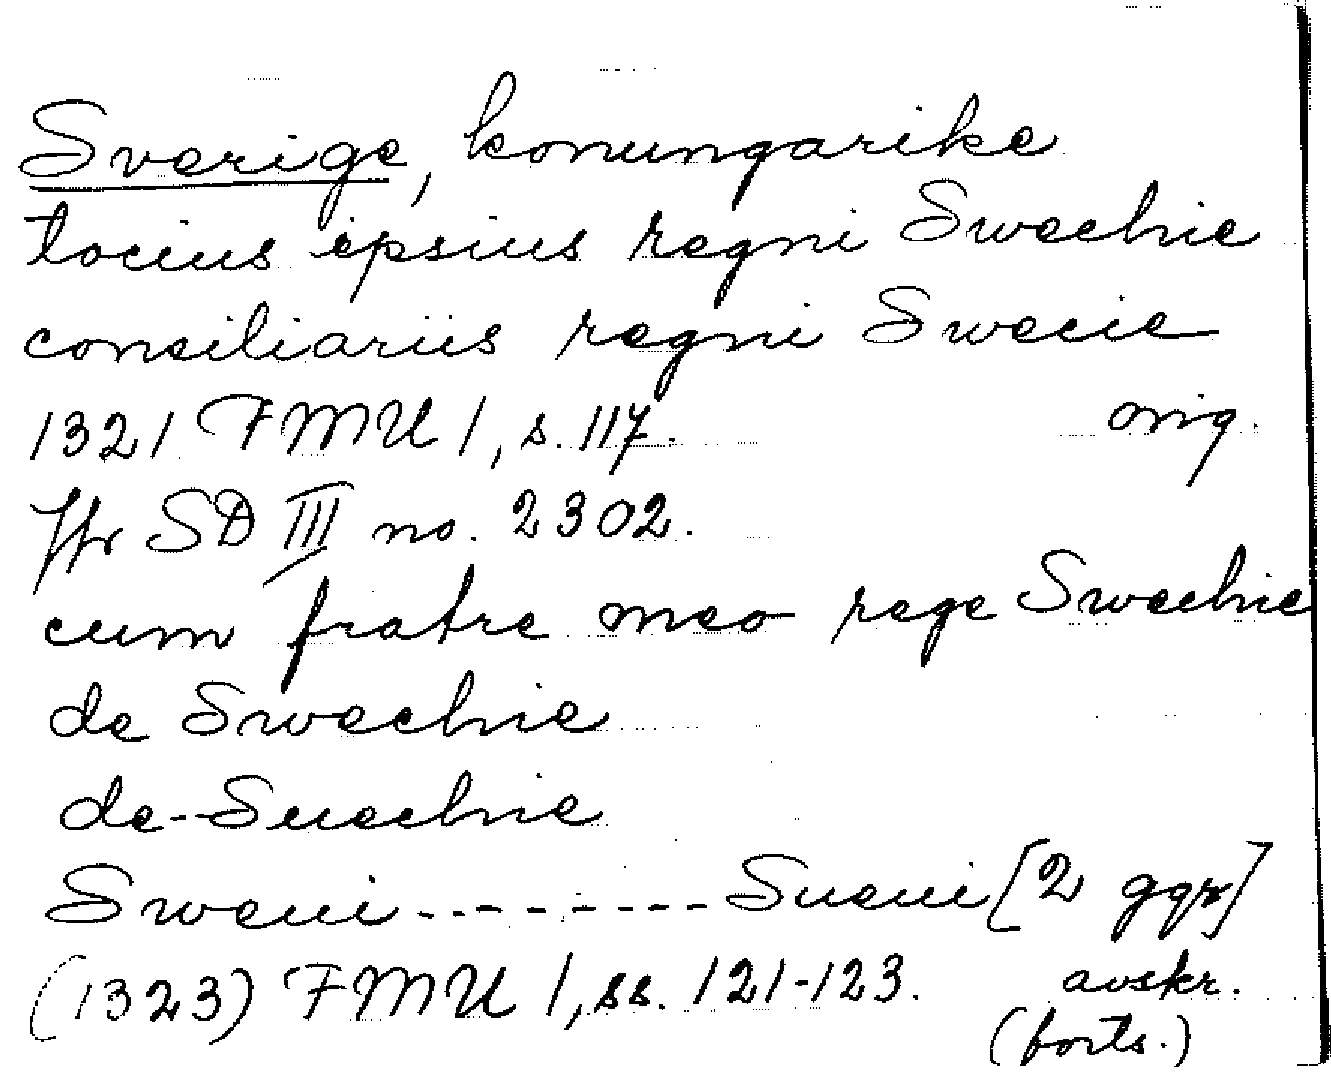 Sverige, konungarike
tocius ipsius regni Swechie
consiliariis regni Swecie
1321 FMU 1, s. 117. orig.
Jfr SD III no. 2302.
cum fratre meo rege Swechie
de Swechie
de - Suechie
Sweui - - - - - - - - Sueui [2 ggr]
(1323) FMU 1, ss. 121-123. avskr.
(forts.)